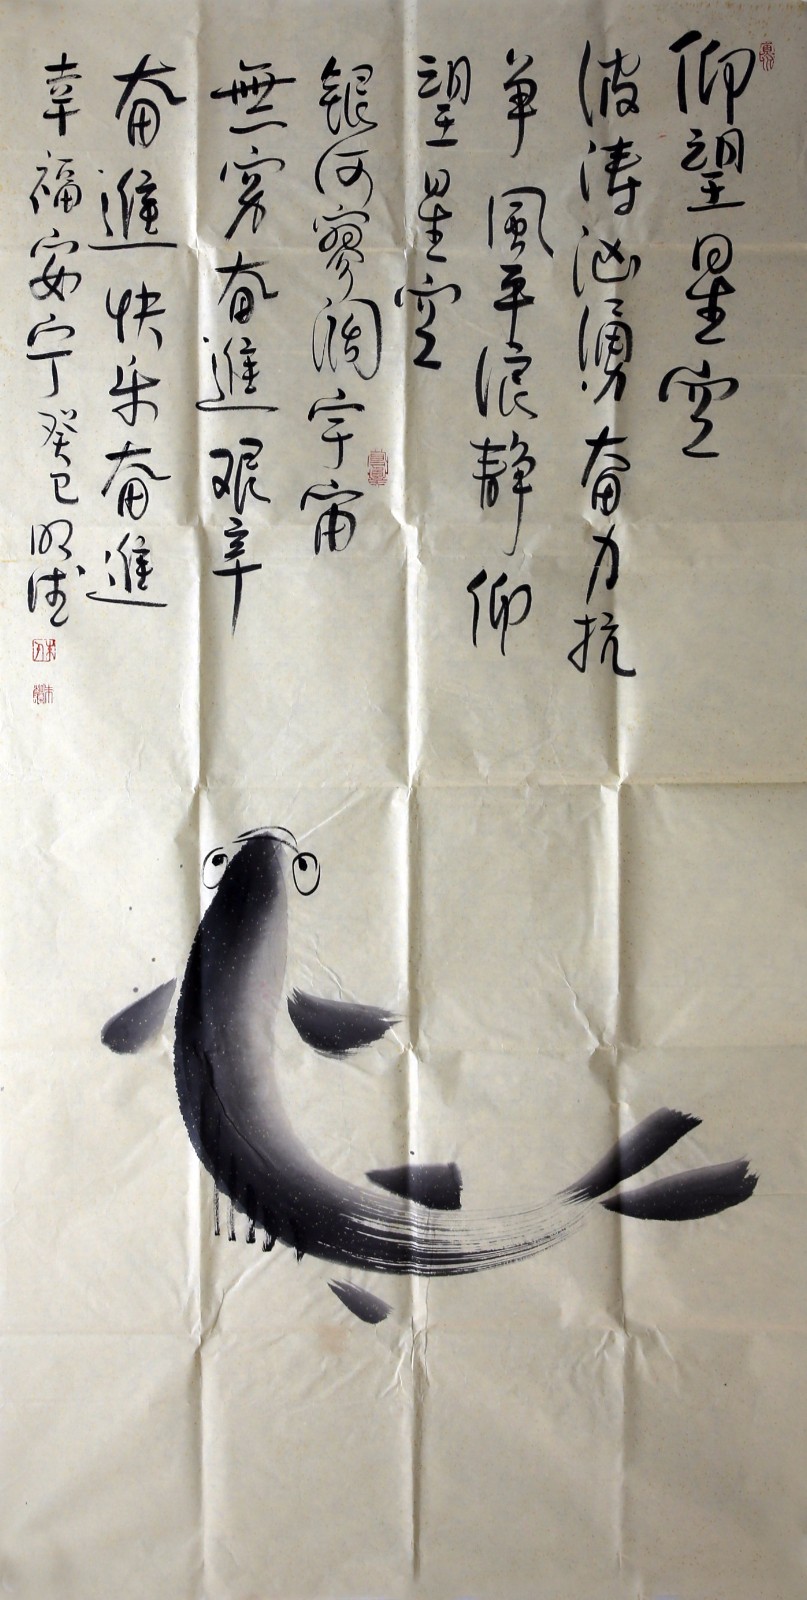 仰望星空
波涛汹湧奋力抗
争風平浪静仰
望星空
银河寥阔宇宙
無穷奋進艰辛
奋進快乐奋進
幸福安宁癸巳明德